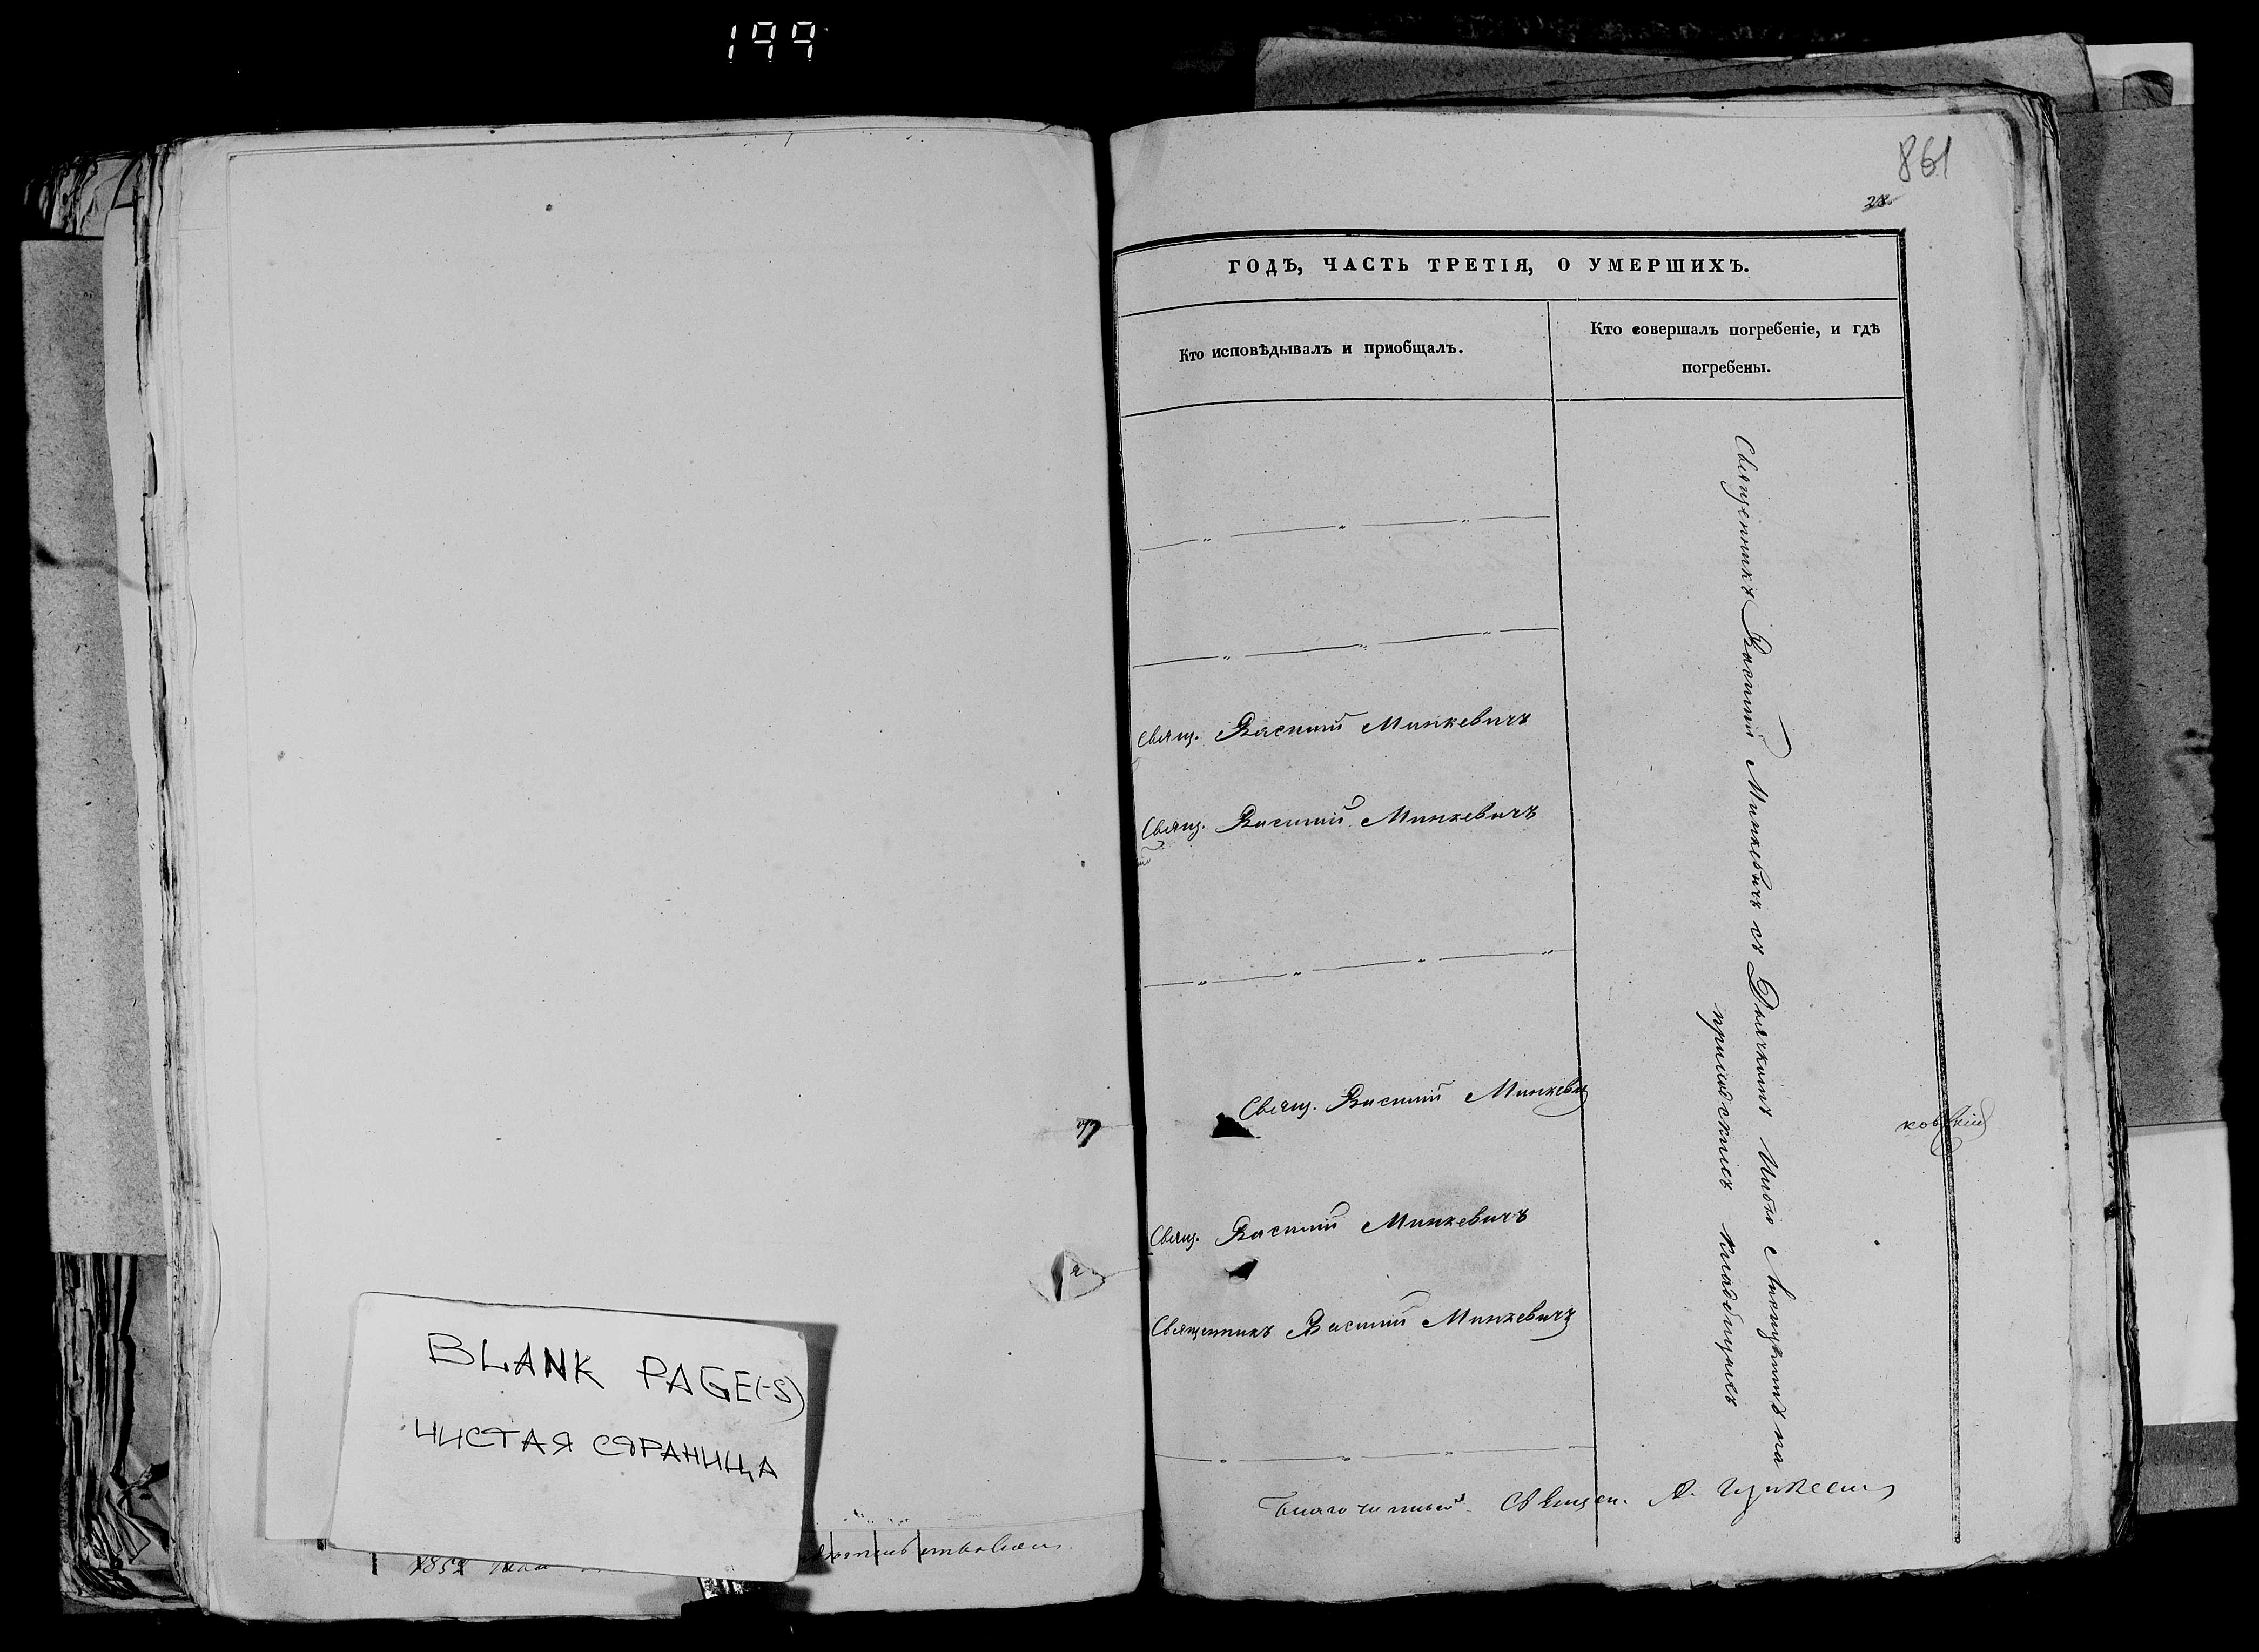 199
861
28.
ГОДЪ, ЧАСТЬ ТРЕТІЯ, О УМЕРШИХЪ.
Кто исповѣдывалъ и приобщалъ.
Кто совершалъ погребеніе, и гдѣ
погребены.
Свящ. Василий Минкевичъ
Свящ. Василий Минкевичъ
Свящ. Василий Минкеви
Свящ. Василий Минкевичъ
Священникъ Василий Минкевичъ
Священникъ Василий Минкевичъ съ Дьячкомъ на
приходскихъ кладбищахъ
ковскій
Благочинный Священ. А.
BLANK PAGE(-S)
ЧИСТАЯ СТРАНИЦА
1852